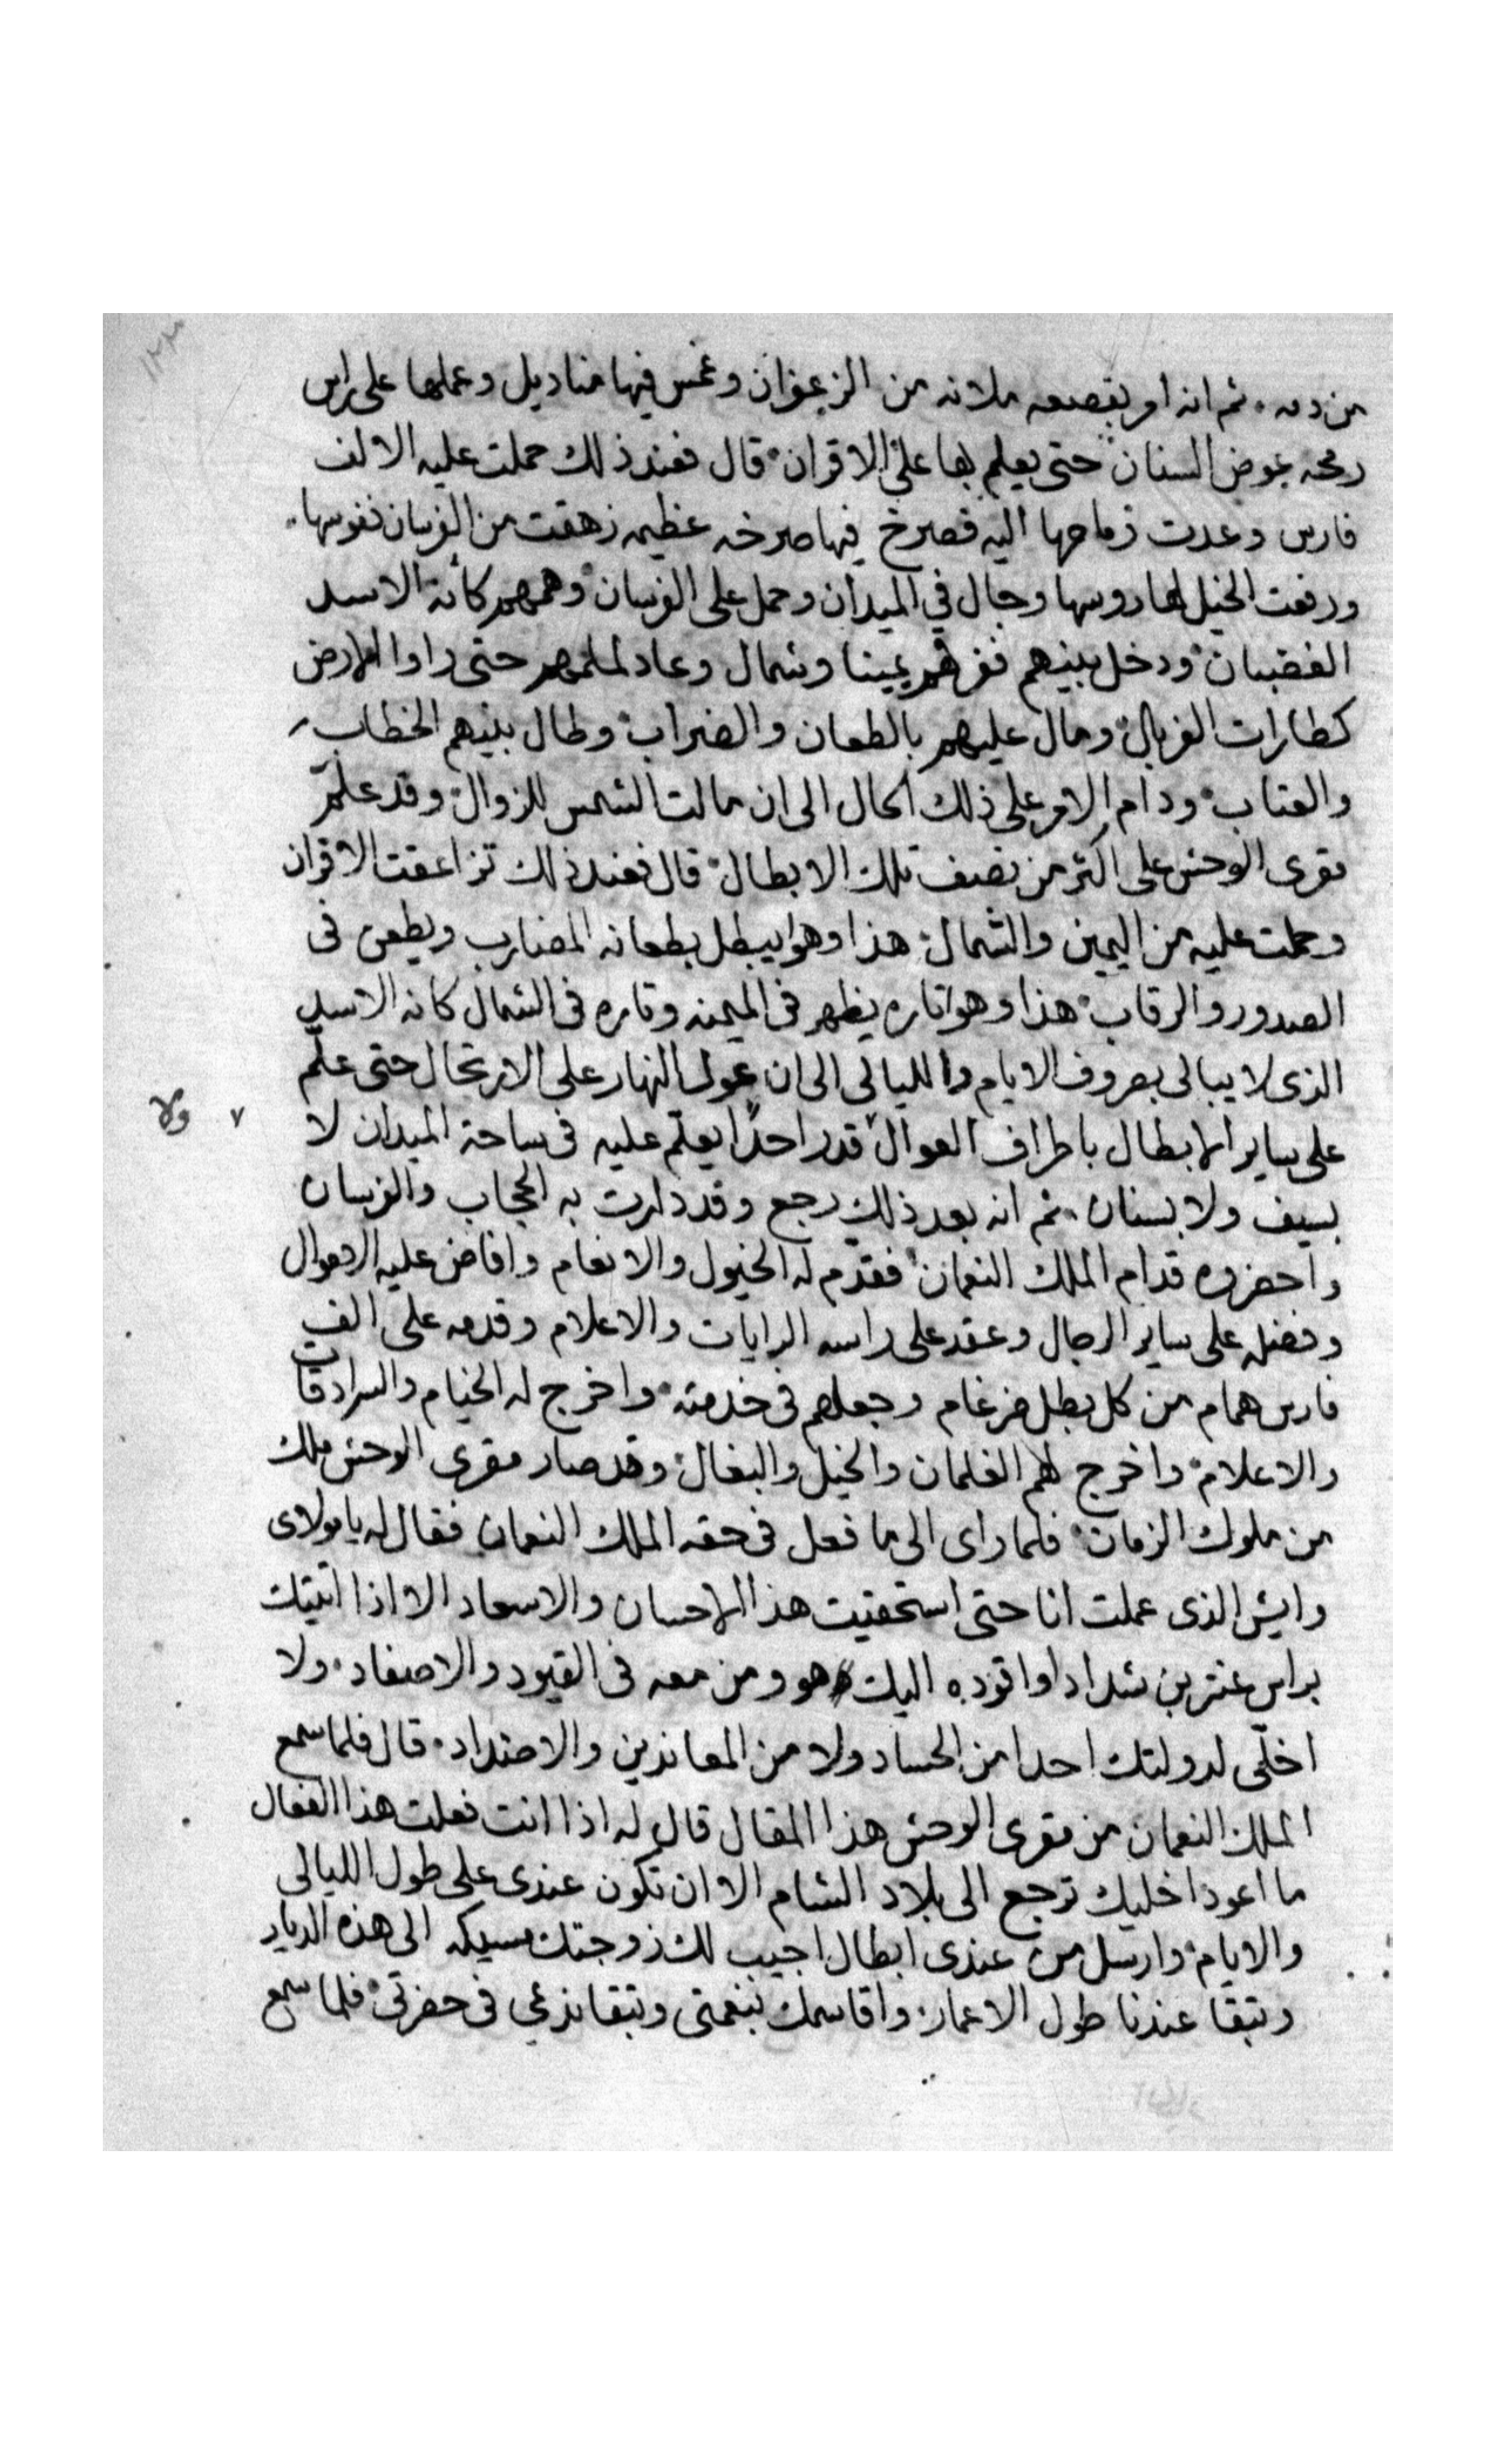 ١٢٣
من دمه. ثم انه امر بقصعه ملانه من الزعفران وغمس فيها مناديل وعملها على راس
رمحه عوض السنان حتى يعلم بها على الاقران قال فعند ذلك حملت عليه الالف
فارس وعدت رماحها اليه فصرخ فيها صرخه عظيمه زهقت من الفرسان نفوسها.
ورفعت الخيل لها روسها وجال في الميدان وحمل على الفرسان وهمهم كأنه الاسد
الغضبان ودخل بينهم ففرقهم يمينا وشمال وعاد لملمهم حتى راوا الارض
كطارات الغربال ومال عليهم بالطعان والضراب وطال بينهم الخطاب
والعتاب ودام الامر على ذلك الحال الى ان مالت الشمس للزوال وقد علّم
مقرى الوحش على اكثر من نصف تلك الابطال قال فعند ذلك تزاعقت الاقران
وحملت عليه من اليمين والشمال هذا وهو ايبطل بطعانه المضارب ويطعن فى
الصدور والرقاب هذا وهو اتاره يظهر فى الميمنه وتاره فى الشمال كانه الاسد
الذى لا يبالى بصروف الايام والليالى الى ان عول النهار على الارتحال حتى علّم
على ساير الابطال باطراف العوال قدر احدًا يعلّم عليه فى ساحة الميدان لا
٧ ولا
بسيف ولا بسنان. ثم انه بعد ذلك رجع وقد دارت به الحجاب والفرسان
واحضروه قدام الملك النعمان فقدّم له الخيول والانعام وافاض عليه الاموال
وفضله على ساير الرجال وعقد على راسه الرايات والاعلام وقدمه على الف
فارس همام من كل بطل ضرغام وجعلهم فى خدمته واخرج له الخيام والسرادقات
والاعلام واخرج لهم الغلمان والخيل والبغال وقد صار مقرى الوحش ملك
من ملوك الزمان فلما راى الى ما فعل فى حقه الملك النعمان فقال له يا مولاى
وايش الذى عملت انا حتى استحقيت هذا الاحسان والاسعاد الا اذا اتيتك
براس عنتر بن شداد او اقوده اليك هو ومن معه فى القيود والاصفاد. ولا
اخلّى لدولتك احدا من الحساد ولا من المعاندين والاضداد. قال فلما سمع
الملك النعمان من مقرى الوحش هذا المقال قال له اذا انت فعلت هذا الفعال
ما اعود اخليك ترجع الى بلاد الشام الا ان تكون عندى على طول الليالى
والايام وارسل من عندى ابطال اجيب لك زوجتك مسيكه الى هذه الديار
وتبقا عندنا طول الاعمار واقاسمك بنعمتى وتبقا ندعى فى حضرتى فلما سمع